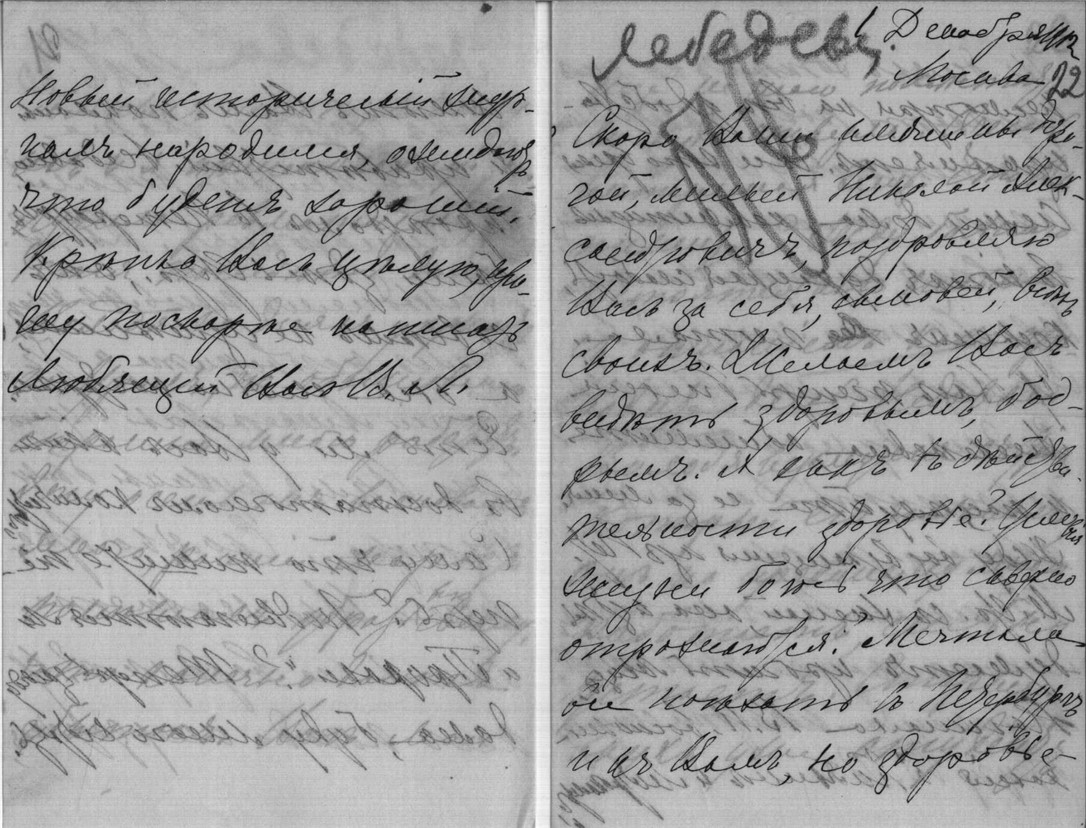 Новый исторический жур-
налъ народился, ожидаютъ
что будетъ хорошій.
Крѣпко Васъ цѣлую, про-
шу поскорѣе написать
Любящій Васъ В. Л.
Лебедевъ
1 Декабря 1912
Москва
22
Скоро Ваши имянины, доро-
гой, милый Николай Алек-
сандровичъ, поздравляю
Васъ за себя, сыновей, всѣхъ
своихъ. Желаемъ Васъ
видѣть здоровымъ, бод-
рымъ. А какъ въ дѣйстви-
тельности здоровье?
жизни боюсь что скверно
отрожается? Мечтала
бы поѣхать въ Петербургъ
и къ Вамъ, но здоровье-